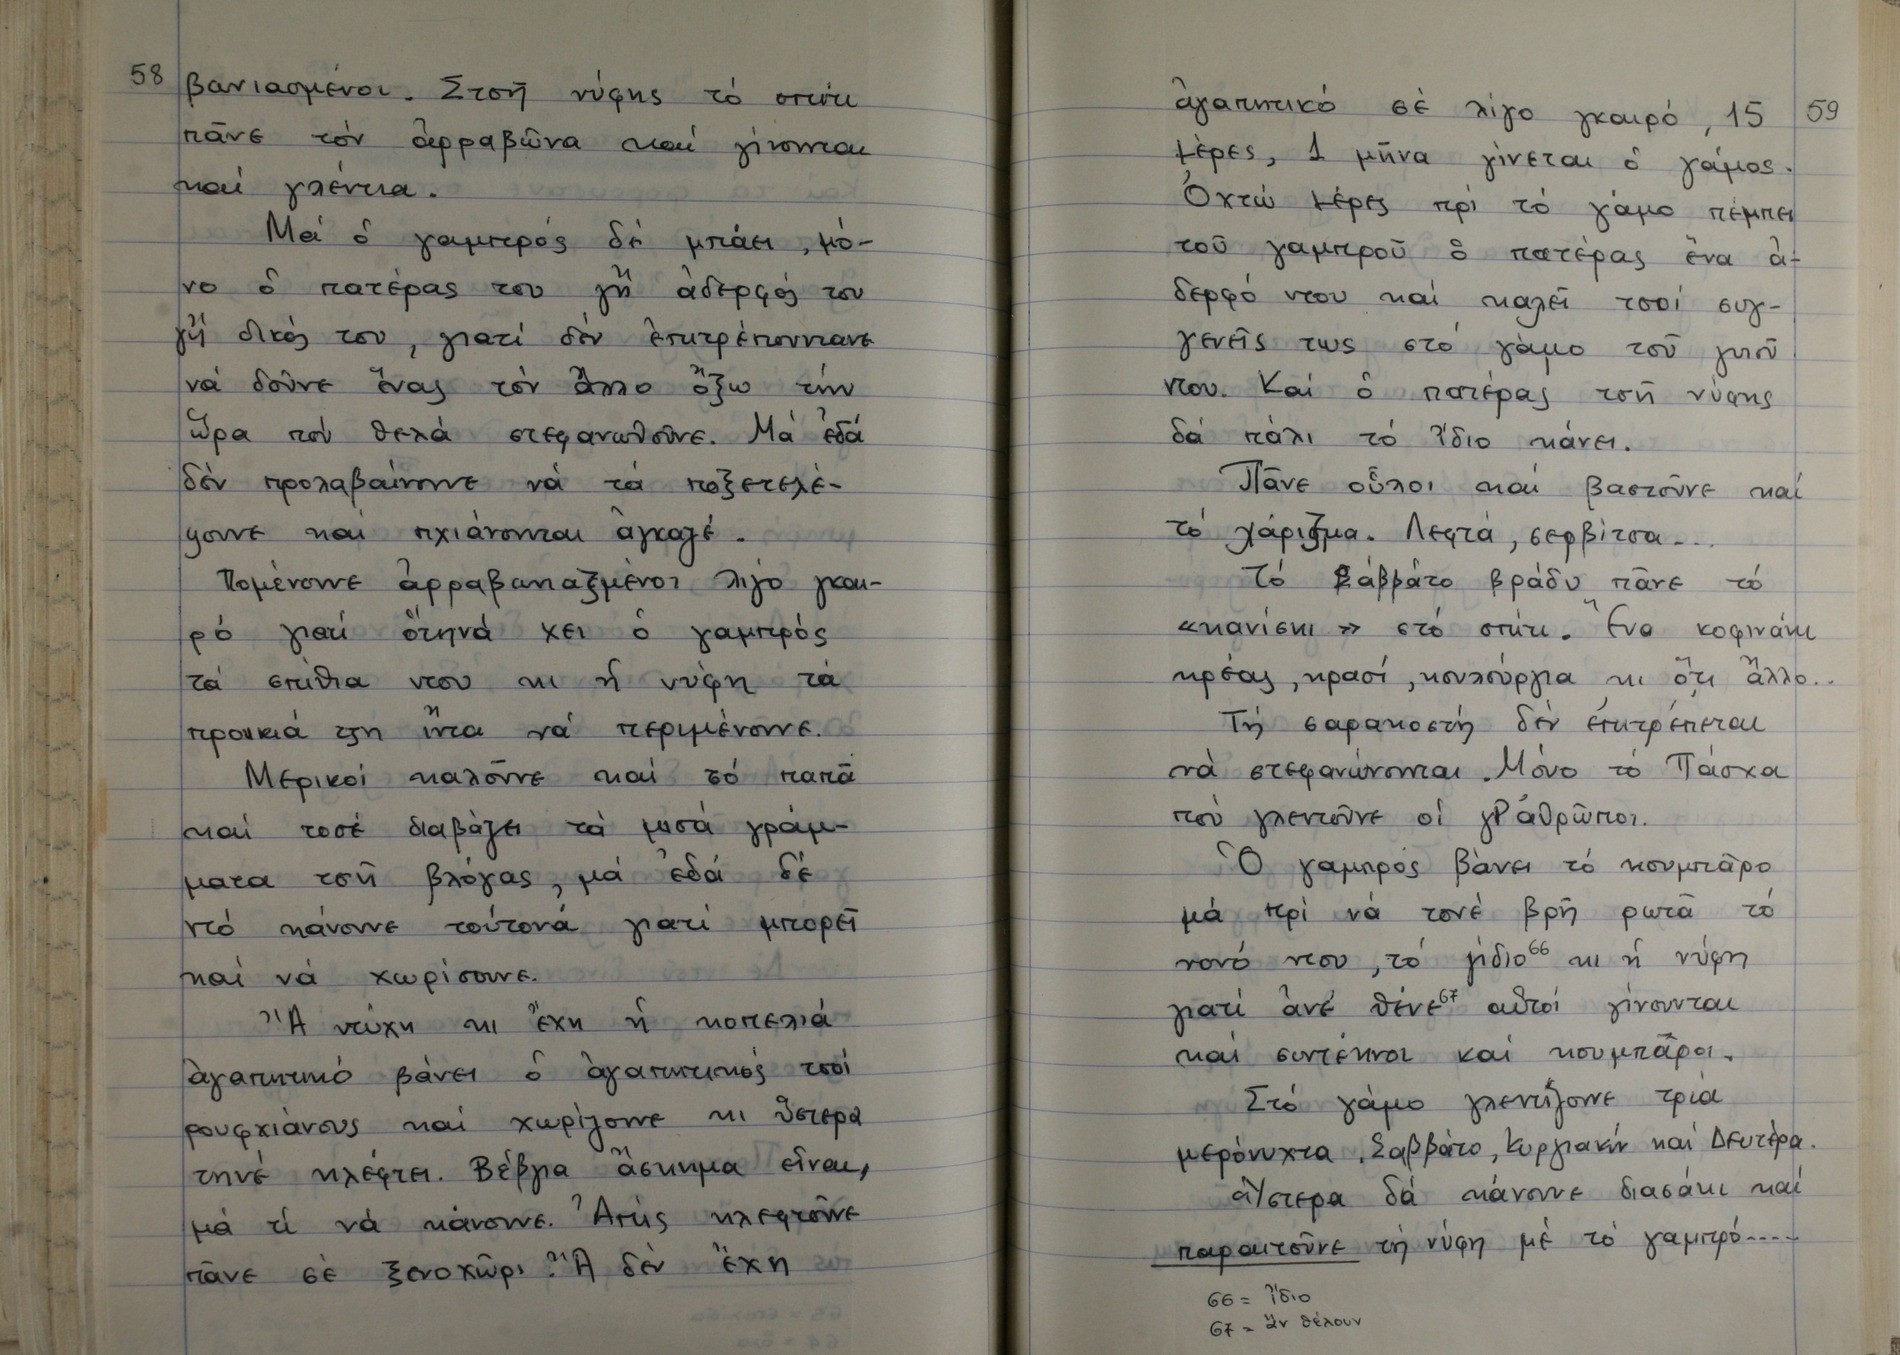 58
βανιασμένοι. Στσῆ νύφης τό σπίτι
πᾶνε τόν ἀρραβῶνα καί γίνονται
καί γλέντια.
Μά ὁ γαμπρός δέ μπάει, μό-
νο ὁ πατέρας του γῆ ἀδερφός του
γῆ δικός του, γιατί δέν ἐπιτρέπουντανε
νά δοῦνε ἕνας τόν ἄλλο ὄξω τήν
ὥρα πού θελά στεφανωθοῦνε. Μά ἐδά
δέν προλαβαίνουνε νά τά ποξετελέ-
ψουνε καί πχιάνονται ἀγκαζέ.
Πομένουνε ἀρραβωνιαζμένοι λίγο γκαι-
ρό γιατί ὅτηνά χει ὁ γαμπρός
τά σπίθια ντου κι ἡ νύφη τά
προικιά τζη ἴντα νά περιμένουνε.
Μερικοί καλοῦνε καί τό παπᾶ
καί τοσέ διαβάζει τά μισά γράμ-
ματα τσῆ βλόγας, μά ἐδά δέ
ντό κάνουνε τούτονά γιατί μπορεῖ
καί νά χωρίσουνε.
Ἄ ντύχη κι ἔχη ἡ κοπελιά
ἀγαπητικό βάνει ὁ ἀγαπητικός τσοί
ρουφχιάνους καί χωρίζουνε κι ὕστερα
τηνέ κλέφτει. Βέβγια ἄσκημα εἶναι,
μά τί νά κάνουνε. Ἀπής κλεφτοῦνε
πᾶνε σέ ξενοχῶρι. Ἄ δέν ἔχη
59
ἀγαπητικό σέ λίγο γκαιρό, 15
μέρες, 1 μῆνα γίνεται ὁ γάμος.
Ὀχτώ μέρες πρί τό γάμο πέμπει
τοῦ γαμπροῦ ὁ πατέρας ἕνα ἀ-
δερφό ντου καί καλεῖ τσοί συγ-
γενεῖς τως στό γάμο τοῦ γυιοῦ
ντου. Καί ὁ πατέρας τσῆ νύφης
δά πάλι τό ἴδιο κάνει.
Πᾶνε οὗλοι καί βαστοῦνε καί
τό χάριζμα. Λεφτά, σερβίτσα...
Τό Σάββάτο βράδυ πᾶνε τό
«κανίσκι» στό σπίτι. Ἕνα κοφινάκι
κρέας, κρασί, κουλούργια κι ὅ,τι ἄλλο..
Τή σαρακοστή δέν ἐπιτρέπεται
νά στεφανώνονται. Μόνο τό Πάσχα
πού γλεντοῦνε οἱ γΑθρῶποι.
Ὁ γαμπρός βάνει τό κουμπᾶρο
μά πρί νά τονέ βρῆ ρωτᾶ τό
νονό ντου, τό γίδιο66 κι ἡ νύφη
γιατί ἀνέ θένε67 αὐτοί γίνουνται
καί συντέκνοι καί κουμπᾶροι.
Στό γάμο γλεντίζουνε τρία
μερόνυχτα, Σαββάτο, Κυργιακήν καί Δευτέρα.
Ὕστερα δά κάνουνε διασάκι καί
παραιτοῦνε τή νύφη μέ τό γαμπρό----
66 = ἴδιο
67 = ἄν θέλουν